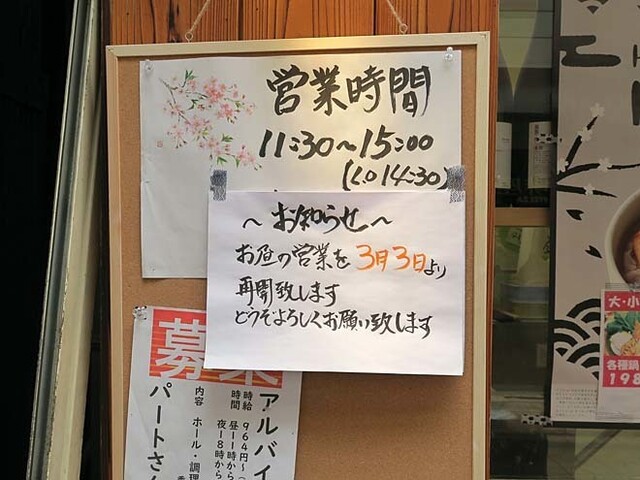 営業時間
11:30～15:00
(L.O 14:30)
～お知らせ～
お昼の営業を3月3日より
再開致します
どうぞよろしくお願い致します
募集
アルバイ
パートさん
時給 964円～
時間 昼11時から
夜18時から
内容 ホール・調理
大・小
各種鍋
198